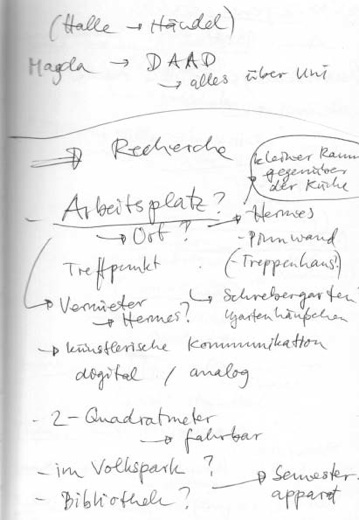 (Halle → Händel)
Magda → DAAD
→ alles über Uni
⇒ Recherche
kleiner Raum
gegenüber
der Küche
- Arbeitsplatz? → Hermes
→ Ort? - Pinnwand
Treffpunkt (-Treppenhaus!)
→ Vermieter → Schrebergarten
→ Hermes? Gartenhäuschen
→ künstlerische Kommunikation
dogital / analog
- 2-Quadratmeter
→ fahrbar
- im Volkspark?
- Bibliothek? → Semester-
apparat